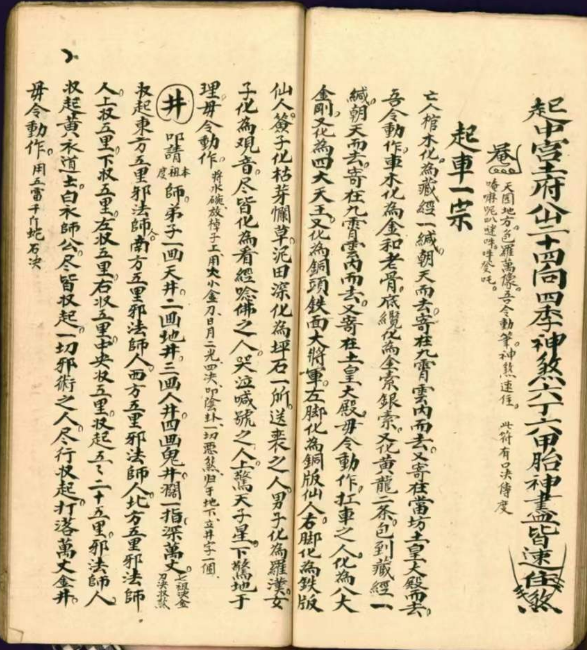 起中宮土府公二十四向四季神煞六丁六甲胎神盡皆速住煞
天圓地方包羅萬像吾令動筆神煞速徃 此符有口决傳度
唵嘛呢叭
起車一宗
亡人棺木化為藏經一緘朝天而去寄在九霄雲內而去又寄在當坊土皇大殿而去
吾令動作車木化為金和老骨底纜化為金索銀索又化黃龍二条包到藏經一
緘朝天而去寄在九霄雲內而去又寄在土皇大殿毋令動作扛車之人化為八大
金剛又化為四大天王又化為銅頭鉄面大將軍左脚化為銅版仙人右脚化為鉄版
仙人簽子化枯芽懶草泥田深化為坪石一所送丧之人男子化為羅漢女
子化為觀音尽皆化為看經念佛之人哭泣喊號之人上驚天子星下驚地子
理毋令動作 将水碗放棹子上用大小金刀日月二光四决叩陰卦一切惡煞归于地下立井字一個
井 叩請 本祖度師 弟子一画天井二画地井三画人井四画鬼井濶一指深萬丈
收起東方五里邪法師南方五里邪法師人西方五里邪法師人北方五里邪法師
人上收五里下收五里左收五里右收五里中央收五里收起五五二十五里邪法師人
收起黃衣道士白衣師公尽皆收起一切邪術之人尽行收起打落萬丈金井
毋令動作 用五雷